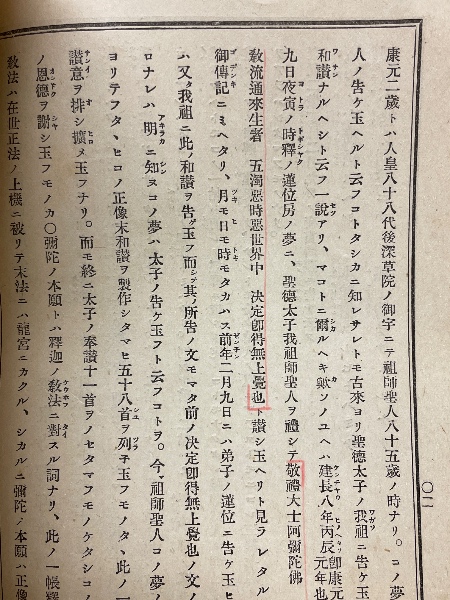 康元二歲トハ人皇八十八代後深草院ノ御宇ニテ祖師聖人八十五歲ノ時ナリ。コノ
人ノ告ケ玉ヘルト云フコトタシカニ知レサレトモ古來ヨリ聖德太子ノ我祖ニ告ケ玉
和讃ナルヘシト云フ一說アリ、マコトニ爾ルヘキ歟ソノユヘハ建長八年丙辰卽康元元年也
九日夜寅ノ時釋ノ蓮位房ノ夢ニ、聖德太子我祖師聖人ヲ禮シテ敬禮大士阿彌陀佛
敎流通來生者 五濁惡時惡世界中 決定卽得無上覺也ト讃シ玉ヘリト見ラレタル
御傳記ニミヘタリ、月モ日モ時モタカハス前年二月九日ニハ弟子ノ蓮位ニ告ケ玉ヒ
ハ又タ我祖ニ此ノ和讃ヲ告ケ玉フ而シ其ノ所告ノ文モマタ前ノ決定卽得無上覺也ノ文ノ
ロナレハ明ニ知ヌコノ夢ハ太子ノ告ケ玉フト云フコトヲ。今、祖師聖人コノ夢ノ
ヨリテフタ、ヒコノ正像末和讃ヲ製作シタマヒ五十八首ヲ列子玉フモノタ、此ノ一
讃意ヲ排シ擴メ玉フナリ。而モ終ニ太子ノ奉讃十一首ヲノセタマフモノケタシコ
ノ恩德ヲ謝シ玉フモノカ〇彌陀ノ本願トハ釋迦ノ敎法ニ對スル詞ナリ、此ノ一帳釋
敎法ハ在世正法ノ上機ニ被リテ末法ニハ龍宮ニカクル、シカルニ彌陀ノ本願ハ正像